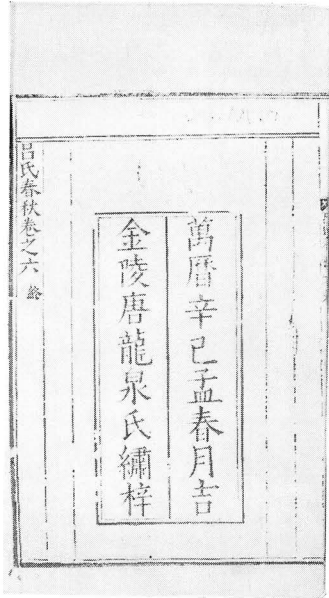 萬曆辛巳孟春月吉
金陵唐龍泉氏繡梓
呂氏春秋卷之六 終